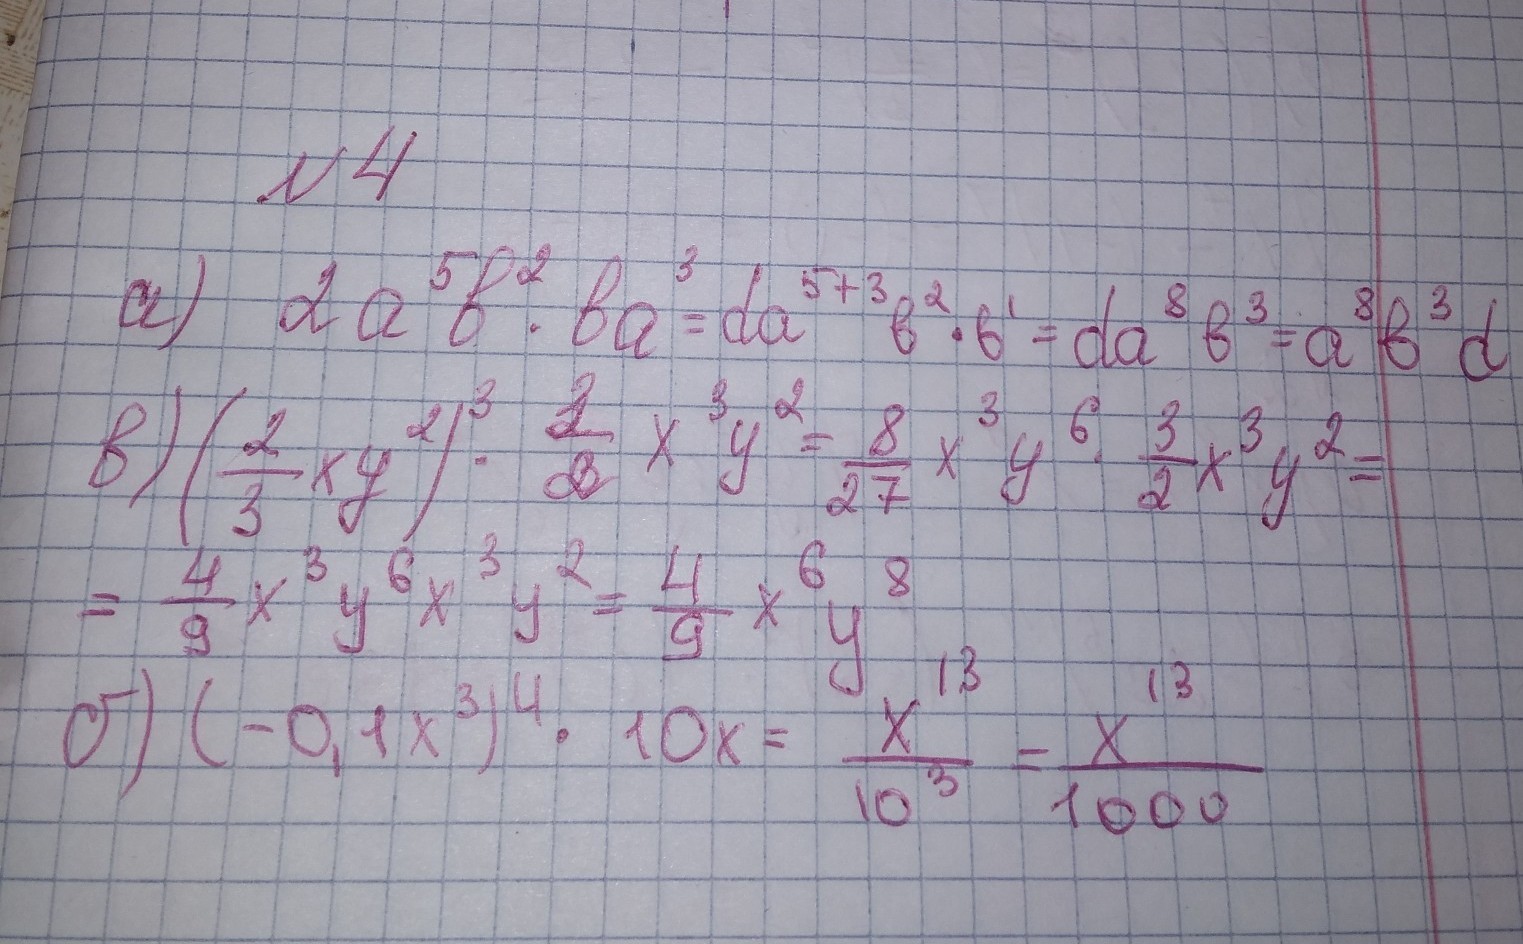 №4
а) 2a⁵b² · ba³ = da⁵⁺³b² · b¹ = da⁸b³ = a⁸b³d
в) (2/3 xy²)³ · 3/2 x³y² = 8/27 x³y⁶ · 3/2 x³y² =
= 4/9 x³y⁶x³y² = 4/9 x⁶y⁸
б) (-0,1x³)⁴ · 10x = x¹³/10³ = x¹³/1000